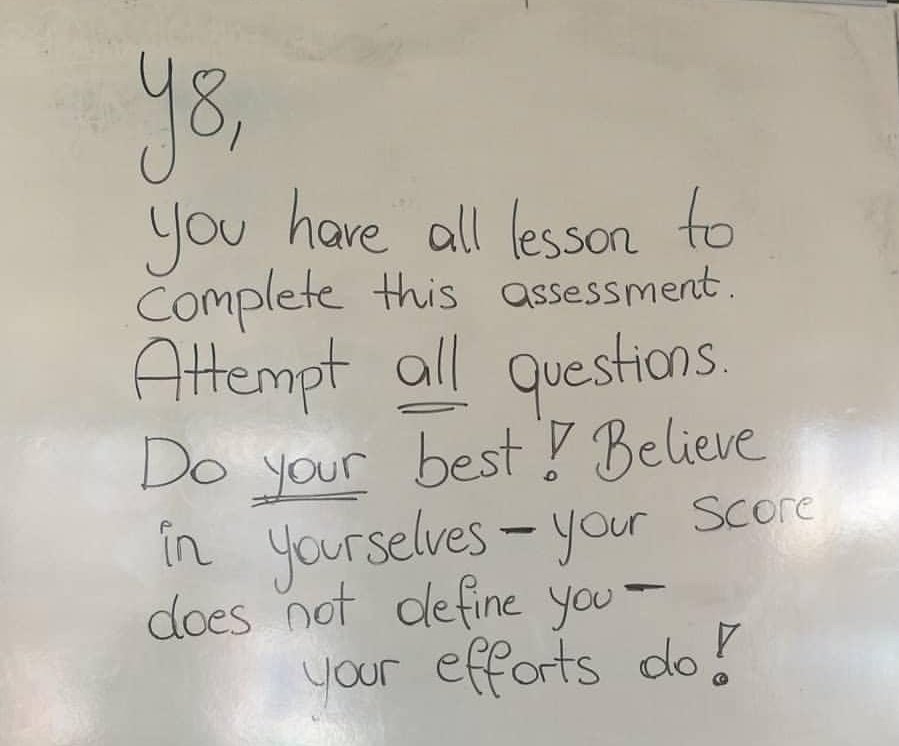 Y8,
you have all lesson to
complete this assessment.
Attempt all questions.
Do your best! Believe
in yourselves - your score
does not define you -
your efforts do!